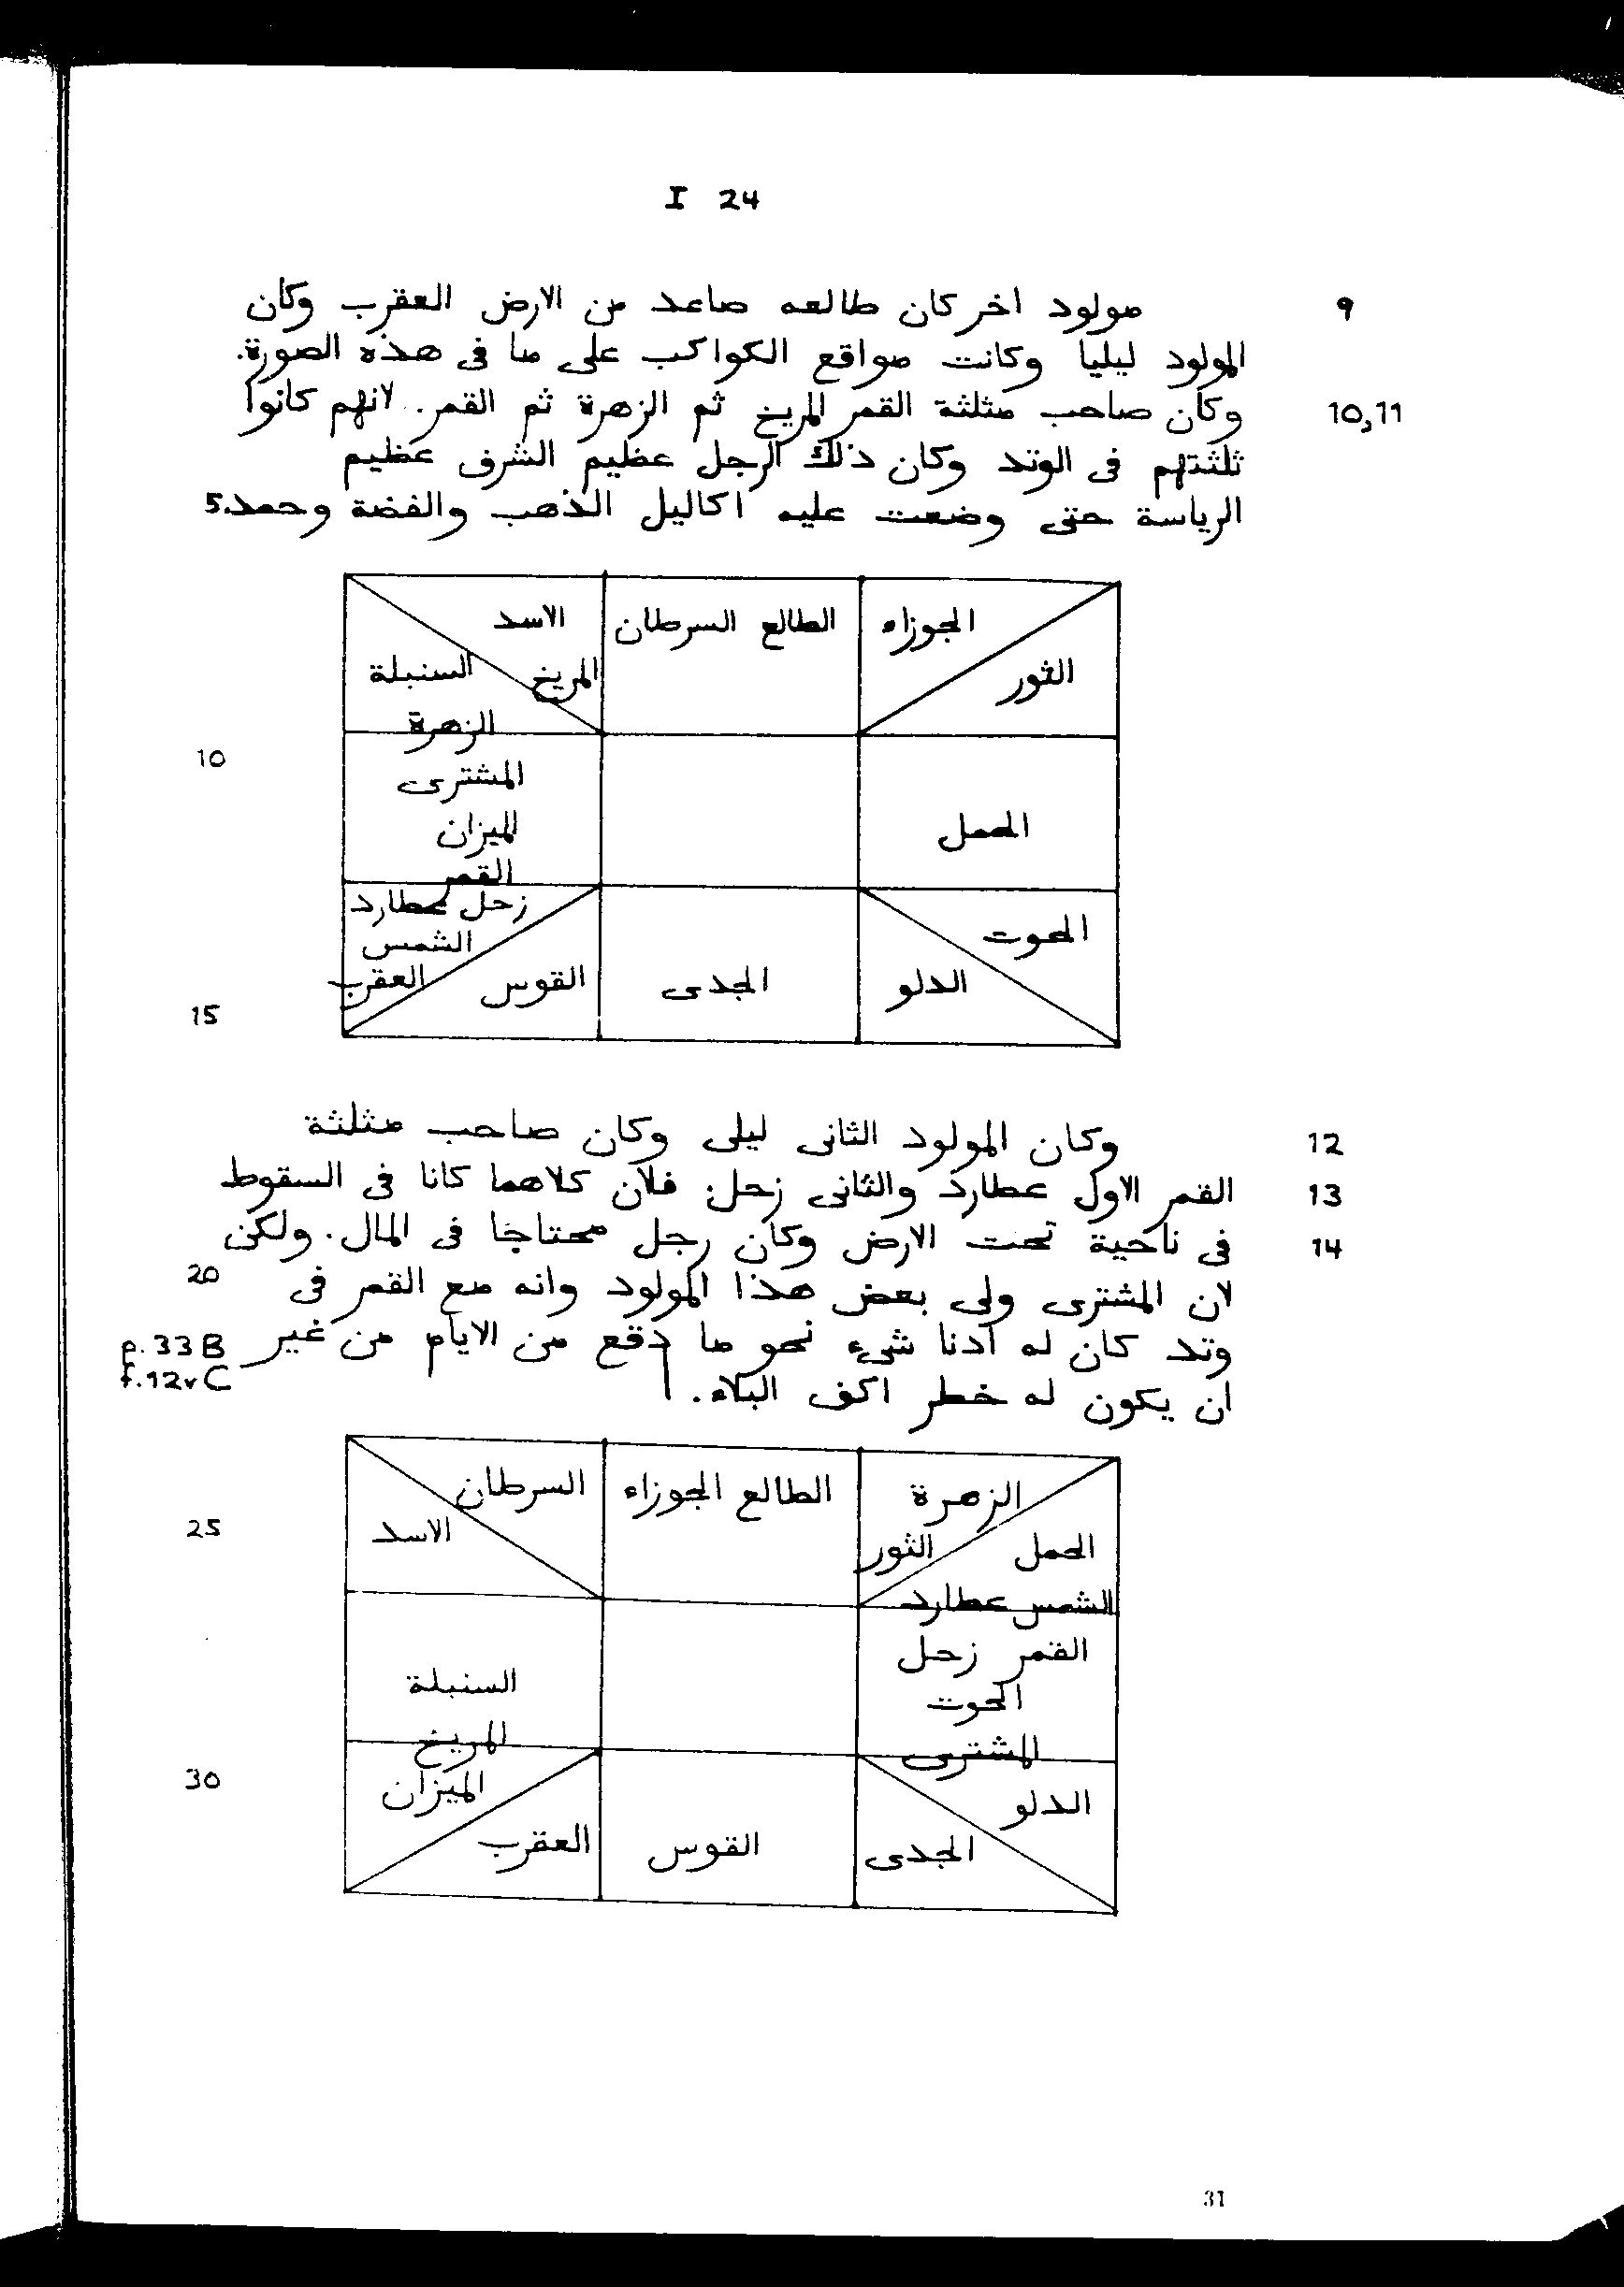 I 24
9 مولود اخر كان طالعه صاعد من الارض العقرب وكان
المولود ليليا وكانت مواقع الكواكب على ما فى هذه الصورة.
10,11 وكان صاحب مثلثة القمر المريخ ثم الزهرة ثم القمر. لانهم كانوا
ثلثتهم فى الوتد وكان ذلك الرجل عظيم الشرف عظيم
الرياسة حتى وضعت عليه اكاليل الذهب والفضة وحمد. 5
الجوزاء الطالع السرطان الاسد
الثور المريخ السنبلة
الزهرة
10
المشترى
الحمل الميزان
القمر
زحل عطارد
الحوت الشمس
الدلو الجدى القوس العقرب
15
12 وكان المولود الثانى ليلى وكان صاحب مثلثة
13 القمر الاول عطارد والثانى زحل: فلان كلاهما كانا فى السقوط
14 فى ناحية تحت الارض وكان رجل محتاجا فى المال. ولكن
لان المشترى ولى بعض هذا المولود وانه مع القمر فى 20
وتد كان له ادنا شىء نحو ما دفع من الايام من غير p. 33 B
ان يكون له خطر اكف البلاء. f. 12v C
الزهرة الطالع الجوزاء السرطان
الحمل الثور الاسد 25
الشمس عطارد
القمر زحل
الحوت السنبلة
المشترى المريخ
الدلو الميزان 30
الجدى القوس العقرب
31